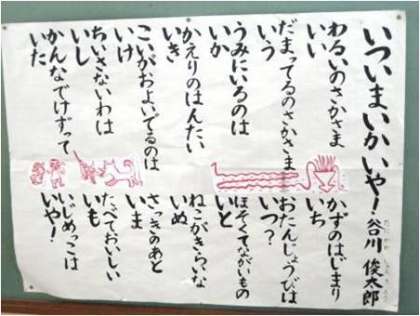 いついまいかいや！ 谷川 俊太郎
わるいのさかさま
いい
だまってるのさかさま
いう
うみにいるのは
いか
かえりのはんたい
いき
こいがおよいでるのは
いけ
ちいさないわは
いし
かんなでけずって
いた
かずのはじまり
いち
おたんじょうびは
いつ？
ほそくてながいもの
いと
ねこがきらいな
いぬ
さっきのあと
いま
たべておいしい
いも
いじめっこは
いや！